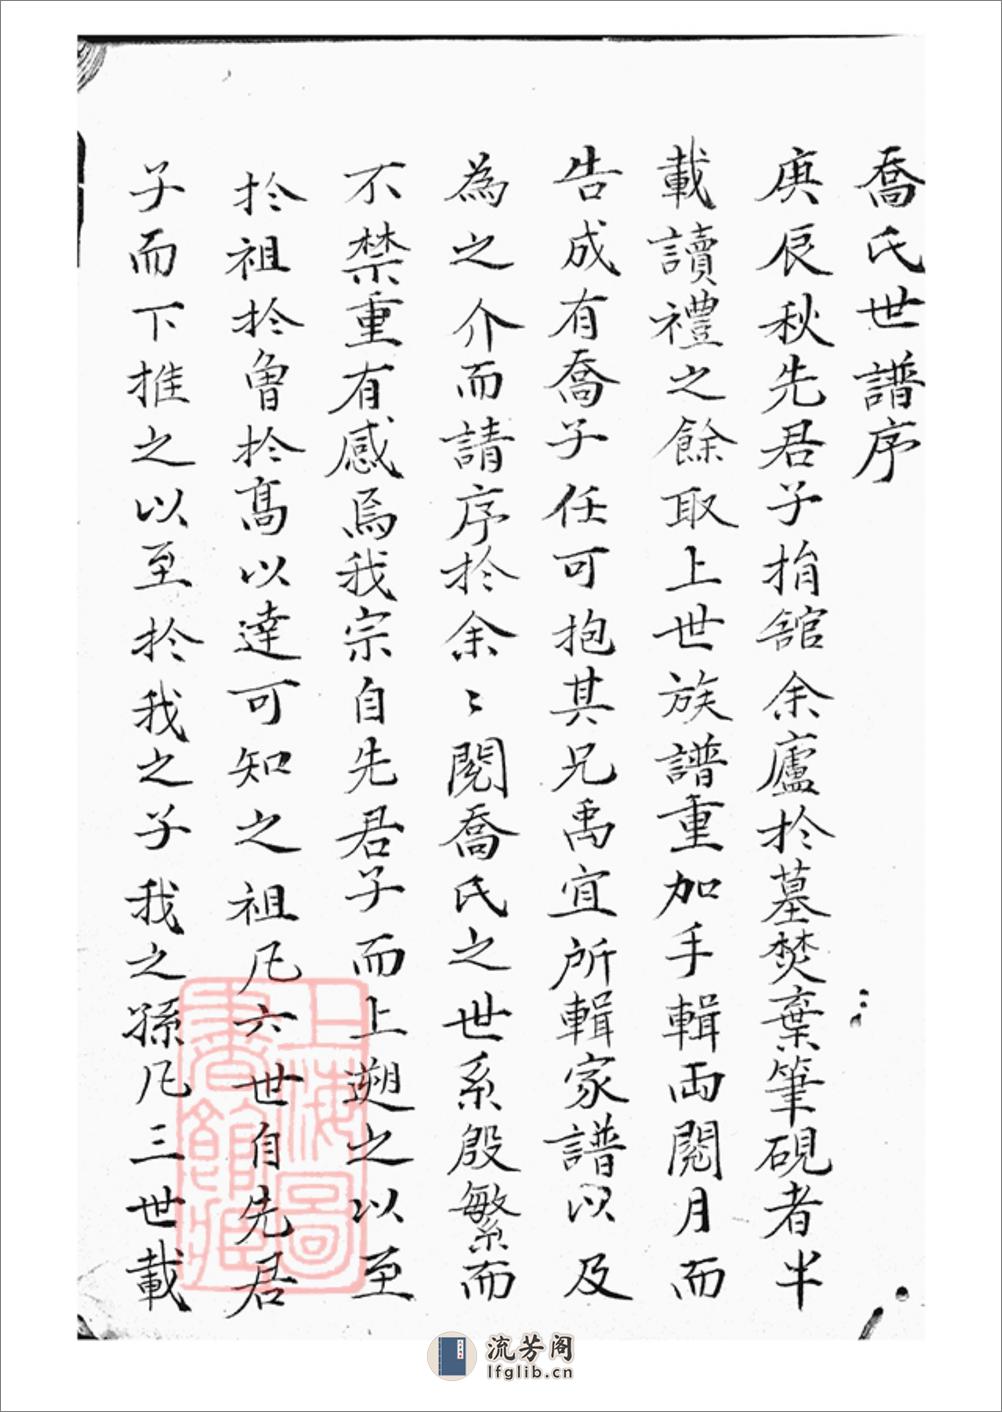 喬氏世譜序
庚辰秋先君子捐舘余廬於墓焚棄筆硯者半
載讀禮之餘取上世族譜重加手輯兩閱月而
告成有喬子任可抱其兄禹宜所輯家譜以及
為之介而請序於余〻閱喬氏之世系殷繁而
不禁重有感焉我宗自先君子而上遡之以至
於祖於曾於高以達可知之祖凡六世自先君
子而下推之以至於我之子我之孫凡三世載
上海圖書館藏
流芳阁
lfglib.cn